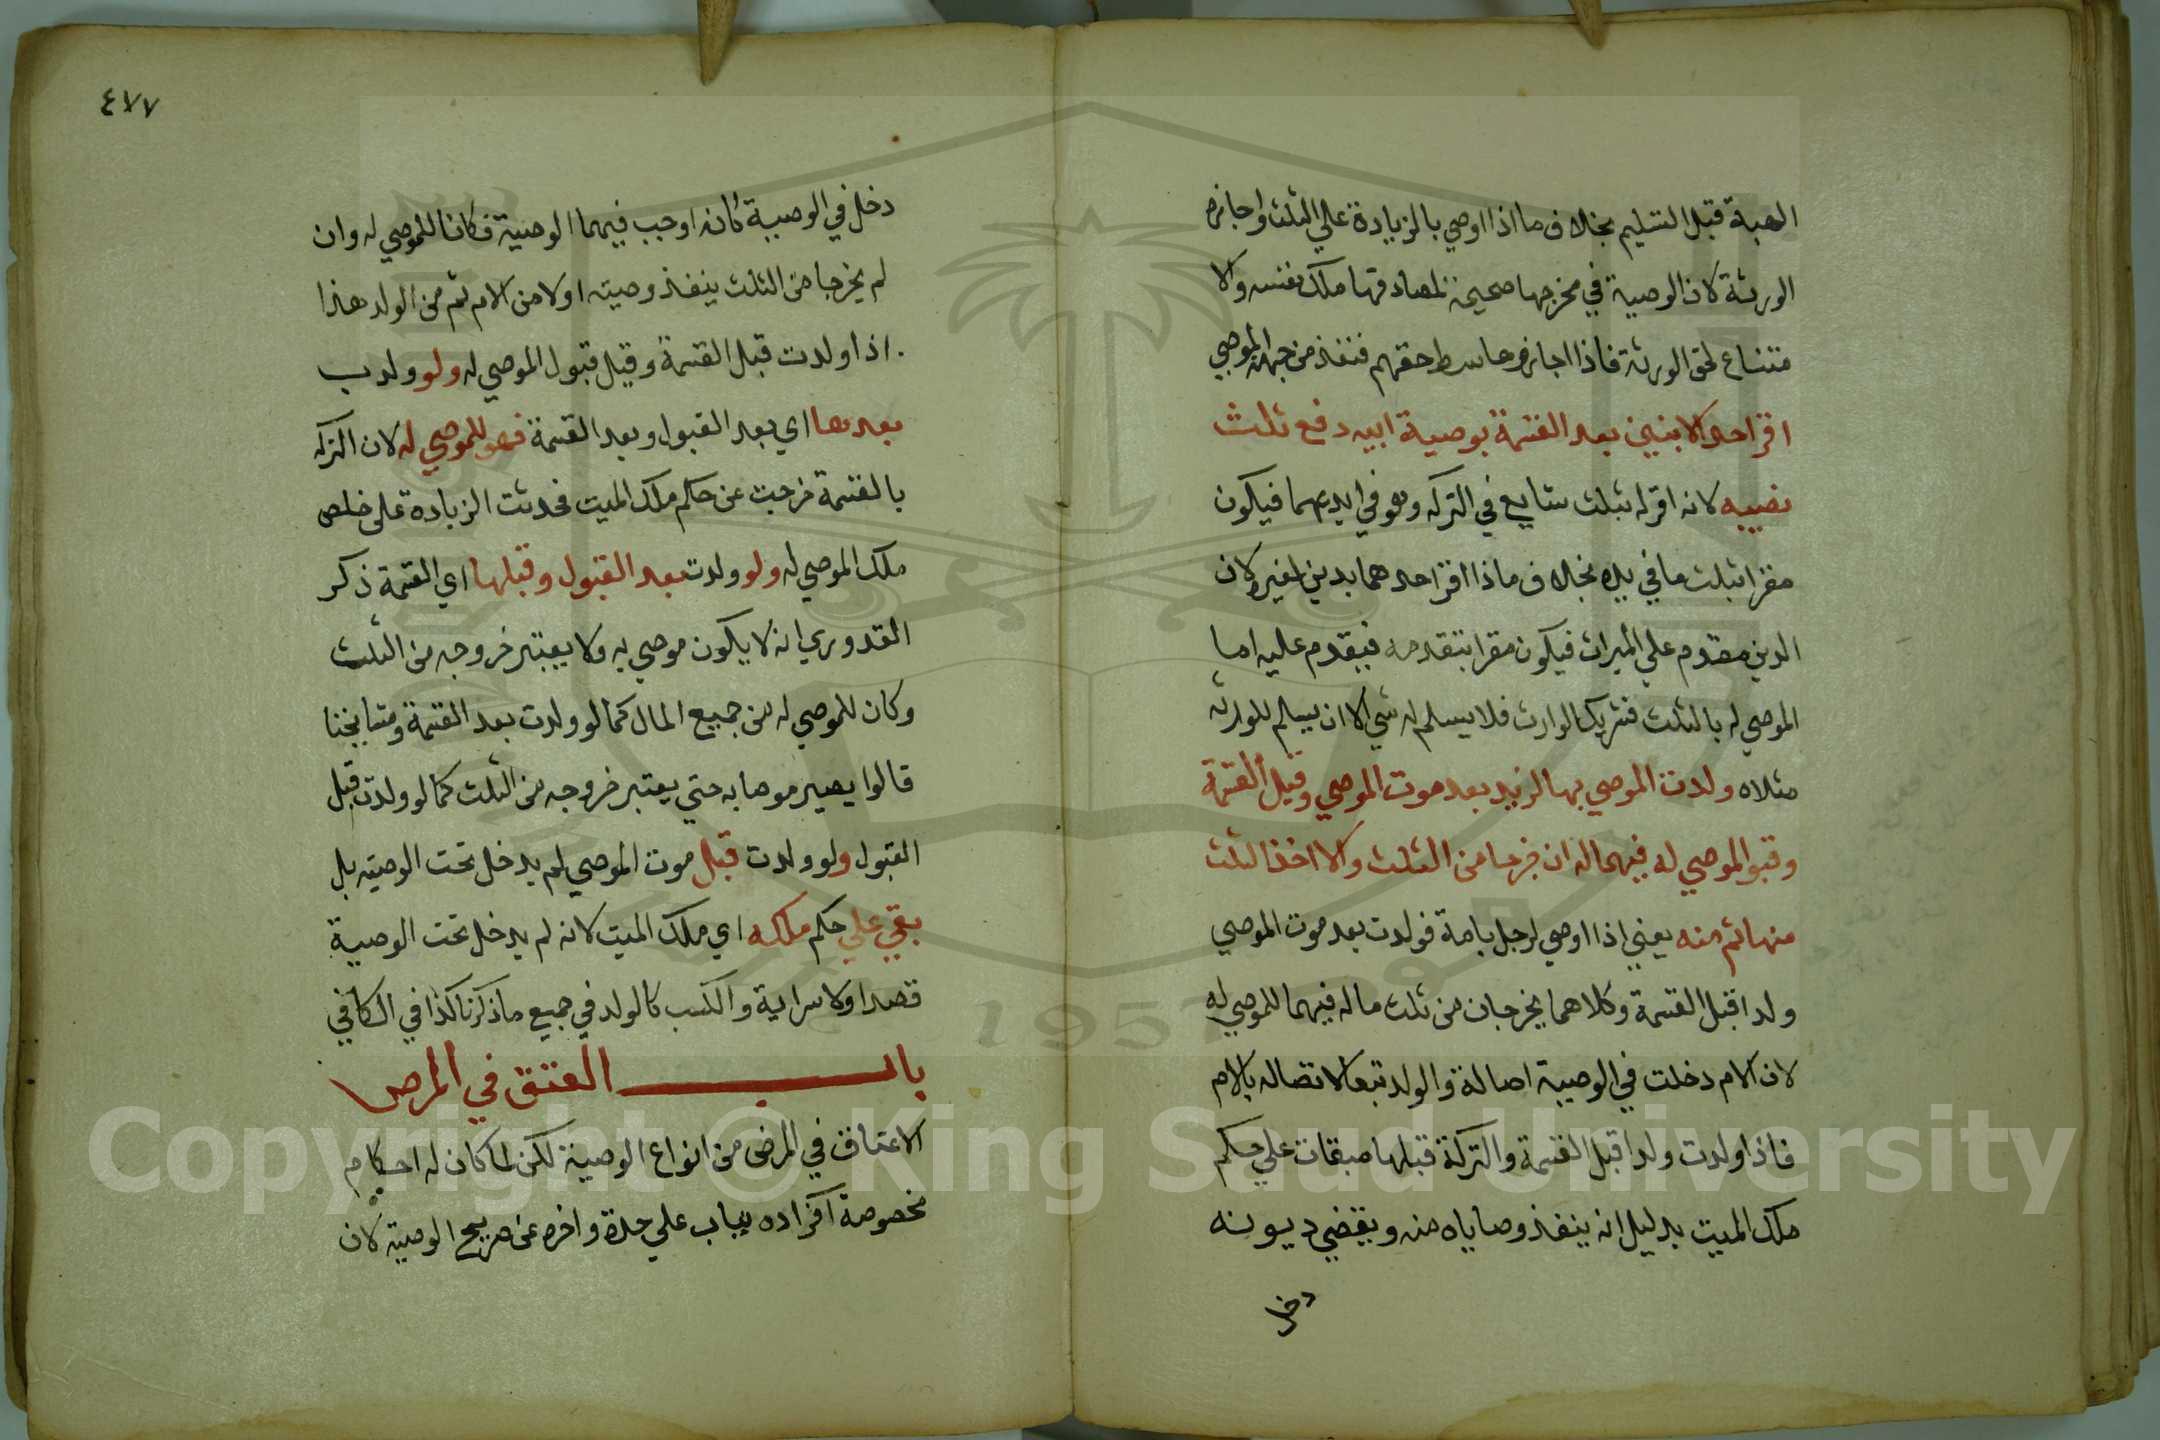 الهبة قبل التسليم بخلاف ما اذا اوصي بالزيادة علي الثلث واجازه
الورثة لان الوصية في مخرجها صحيحة لمصادقتها ملك نفسه والا
متناع لحق الورثة فاذا اجازوها سقط حقهم فتنفذ من جهة الموصي
اقر احد الابنين بعد القسمة بوصية ابيه دفع ثلث
نصيبه لانه اقر له بثلث شايع في التركه وهو في ايديهما فيكون
مقرا بثلث ما في يده بخلاف ما اذا اقر احدهما بدين لغيره لان
الدين مقدم علي الميراث فيكون مقرا بتقدمه فيقدم عليه اما
الموصي له بالثلث فشريك الوارث فلا يسلم له شي الا ان يسلم للورثه
مثلاه ولدت الموصي بها لزيد بعد موت الموصي وقبل القسمة
وقبول الموصي له فيهما له ان خرجا من الثلث والا اخذ الثلث
منها ثم منه يعني اذا اوصي لرجل بامة فولدت بعد موت الموصي
ولدا قبل القسمة وكلاهما يخرجان من ثلث ماله فيهما للموصي له
لان الام دخلت في الوصية اصالة والولد تبعا لاتصاله بالام
فاذا ولدت ولدا قبل القسمة والتركة قبلها مبقات علي حكم
ملك الميت بدليل انه ينفذ وصاياه منه ويقضي ديونه
دخل
٤٧٧
دخل في الوصية كانه اوجب فيهما الوصية فكانا للموصي له وان
لم يخرجا من الثلث ينفذ وصيته اولا من الام ثم من الولد هذا
اذا ولدت قبل القسمة وقبل قبول الموصي له ولو ولدت
بعدهما اي بعد القبول وبعد القسمة فهو للموصي له لان التركه
بالقسمة خرجت عن حكم ملك الميت فحدثت الزيادة على خلص
ملك الموصي له ولو ولدت بعد القبول وقبلها اي القسمة ذكر
القدوري انه لا يكون موصي به ولا يعتبر خروجه من الثلث
وكان للموصي له من جميع المال كما لو ولدت بعد القسمة ومشايخنا
قالوا يصير موصا به حتي يعتبر خروجه من الثلث كما لو ولدت قبل
القبول ولو ولدت قبل موت الموصي لم يدخل تحت الوصيه بل
بقي علي حكم ملكه اي ملك الميت لانه لم يدخل تحت الوصية
قصدا ولا سراية والكسب كالولد في جميع ما ذكرنا كذا في الكافي
باب العتق في المرض
الاعتاق في المرض من انواع الوصية لكن لما كان له احكام
مخصوصة افراده بباب علي حدة واخره عن صريح الوصية لان
Copyright © King Saud University
1957